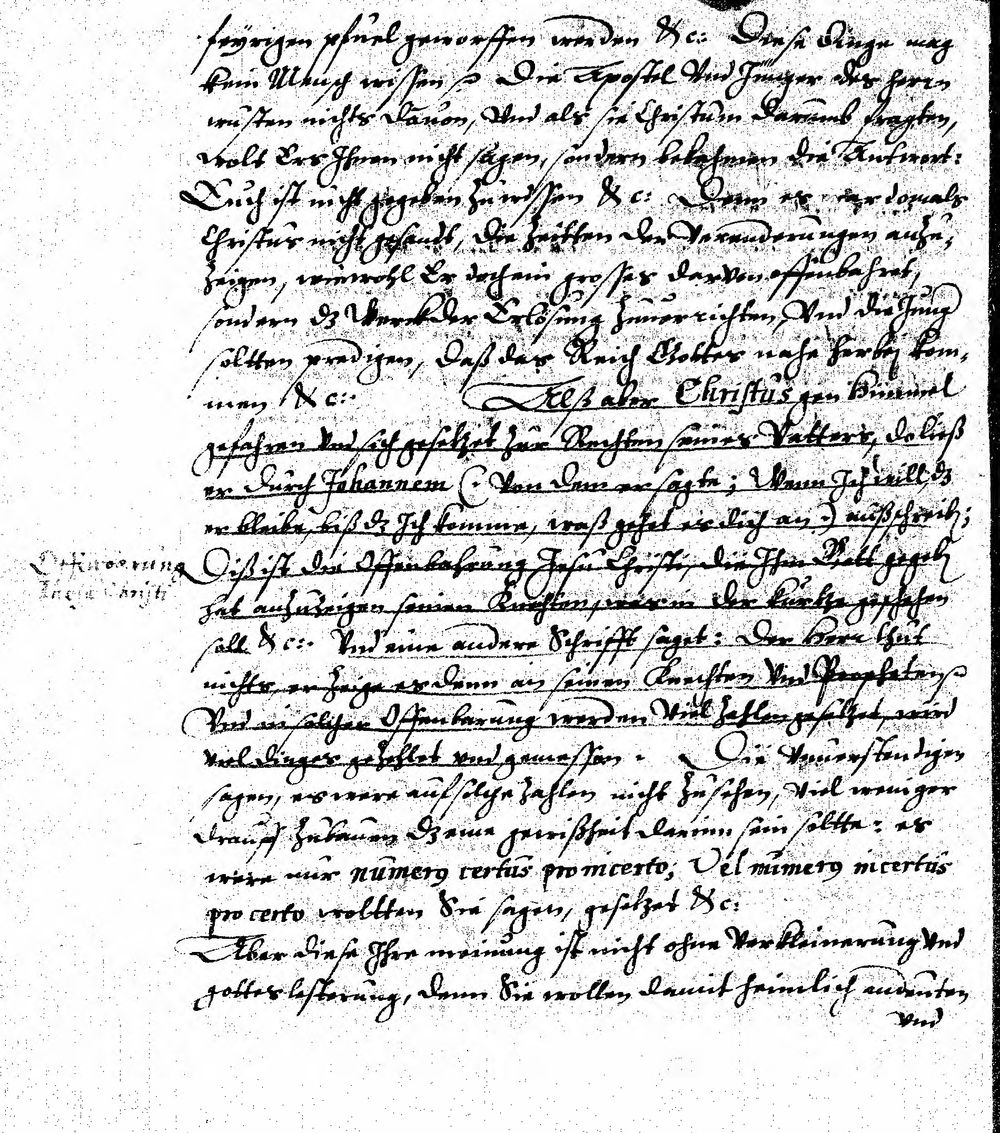 feyrigen pfuel geworffen werden &c: Diese dinge mag
kein Mensch wissen, Die Apostel Vnd Jünger des herrn
wusten nichts dauon, Vnd als sie Christum darumb fragten,
wolt Ers Ihnen nicht sagen, sondern bekahmen die Antwort:
Euch ist nicht gegeben Zuwissen &c: Denn es war domals
Christus nicht gesandt, die Zeitten der Verenderungen anzu,
zeigen, wiewohl Er doch ein grosses darvon offenbahret,
sondern dz Werck der Erlösung Zuuerrichten, Vnd die Jung
soltten predigen, daß das Reich Gottes nahe herbej kom,
men &c:
Alß aber Christus gen himmel
gefahren vnd sich gesetzet Zur Rechten seines Vatters, do ließ
er durch Johannem (: Von dem er sagte; Wenn Ich will dz
er bleibe, biß dz Ich komme, waß gehet es dich an :) außschreib;
Offenbarung
Jhesu Christi
Diß ist die Offenbahrung Jesu Christi, die Ihm Gott gegeb
hat anzuzeigen seinen Knechten, was in der kürtze geschehen
soll &c: Vnd eine andere Schrifft saget: Der Herr thut
nichts, er zeige es denn an seinen Knechten Vnd Propheten,
Vnd in solcher Offenbarung werden Viel Zahlen gesetzet, wird
viel dinges gezehlet vnd gemessen. Die Vnuerstendigen
sagen, es were auf solche Zahlen nicht Zusehen, Viel weniger
drauff Zubauen dz eine gewißheit darinn sein soltte: es
were nur numerg certus pro incerto; Vel numerg incertus
pro certo woltten Sie sagen, gesetzet &c:
Aber diese Ihre meinung ist nicht ohne Verkleinerung Vnd
gotteslesterung, denn Sie wollen damit heimlich andeuten
vnd